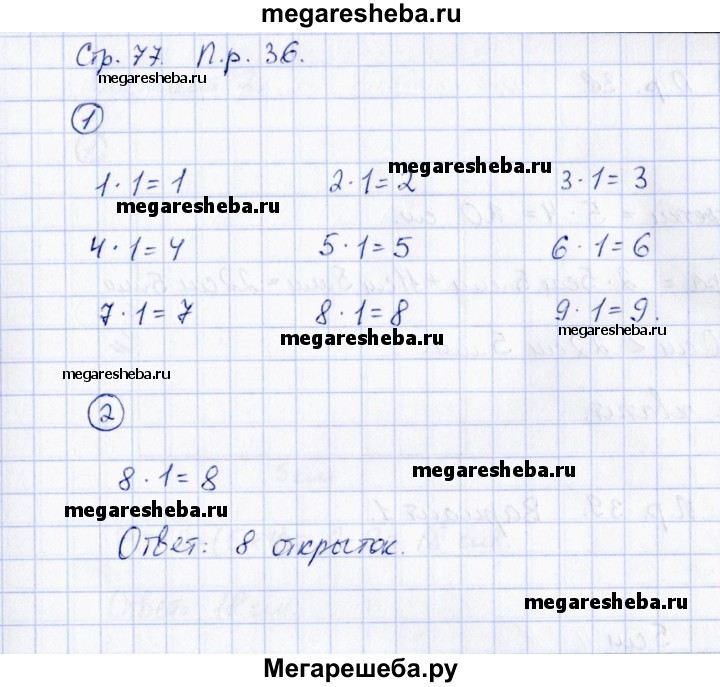 megaresheba.ru
Стр. 77. П.р. 36.
megaresheba.ru
1
megaresheba.ru
1 · 1 = 1 2 · 1 = 2 3 · 1 = 3
megaresheba.ru
4 · 1 = 4 5 · 1 = 5 6 · 1 = 6
7 · 1 = 7 8 · 1 = 8 9 · 1 = 9.
megaresheba.ru
megaresheba.ru
megaresheba.ru
2
8 · 1 = 8
megaresheba.ru
megaresheba.ru
Ответ: 8 открыток.
megaresheba.ru
Мегарешеба.ру